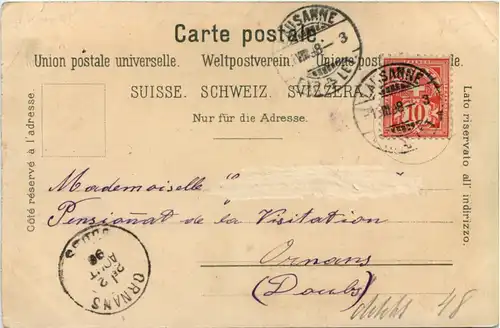 Carte postale.
Union postale universelle. Weltpostverein. Unione postale universale.
SUISSE. SCHWEIZ. SVIZZERA.
Nur für die Adresse.
Côté réservé à l'adresse.
Lato riservato all' indirizzo.
LAUSANNE
LAUSANNE
10
Mademoiselle "
Pensionat de la Visitation
Ornans
(Doubs)
ORNANS
DOUBS
AOUT
98
48